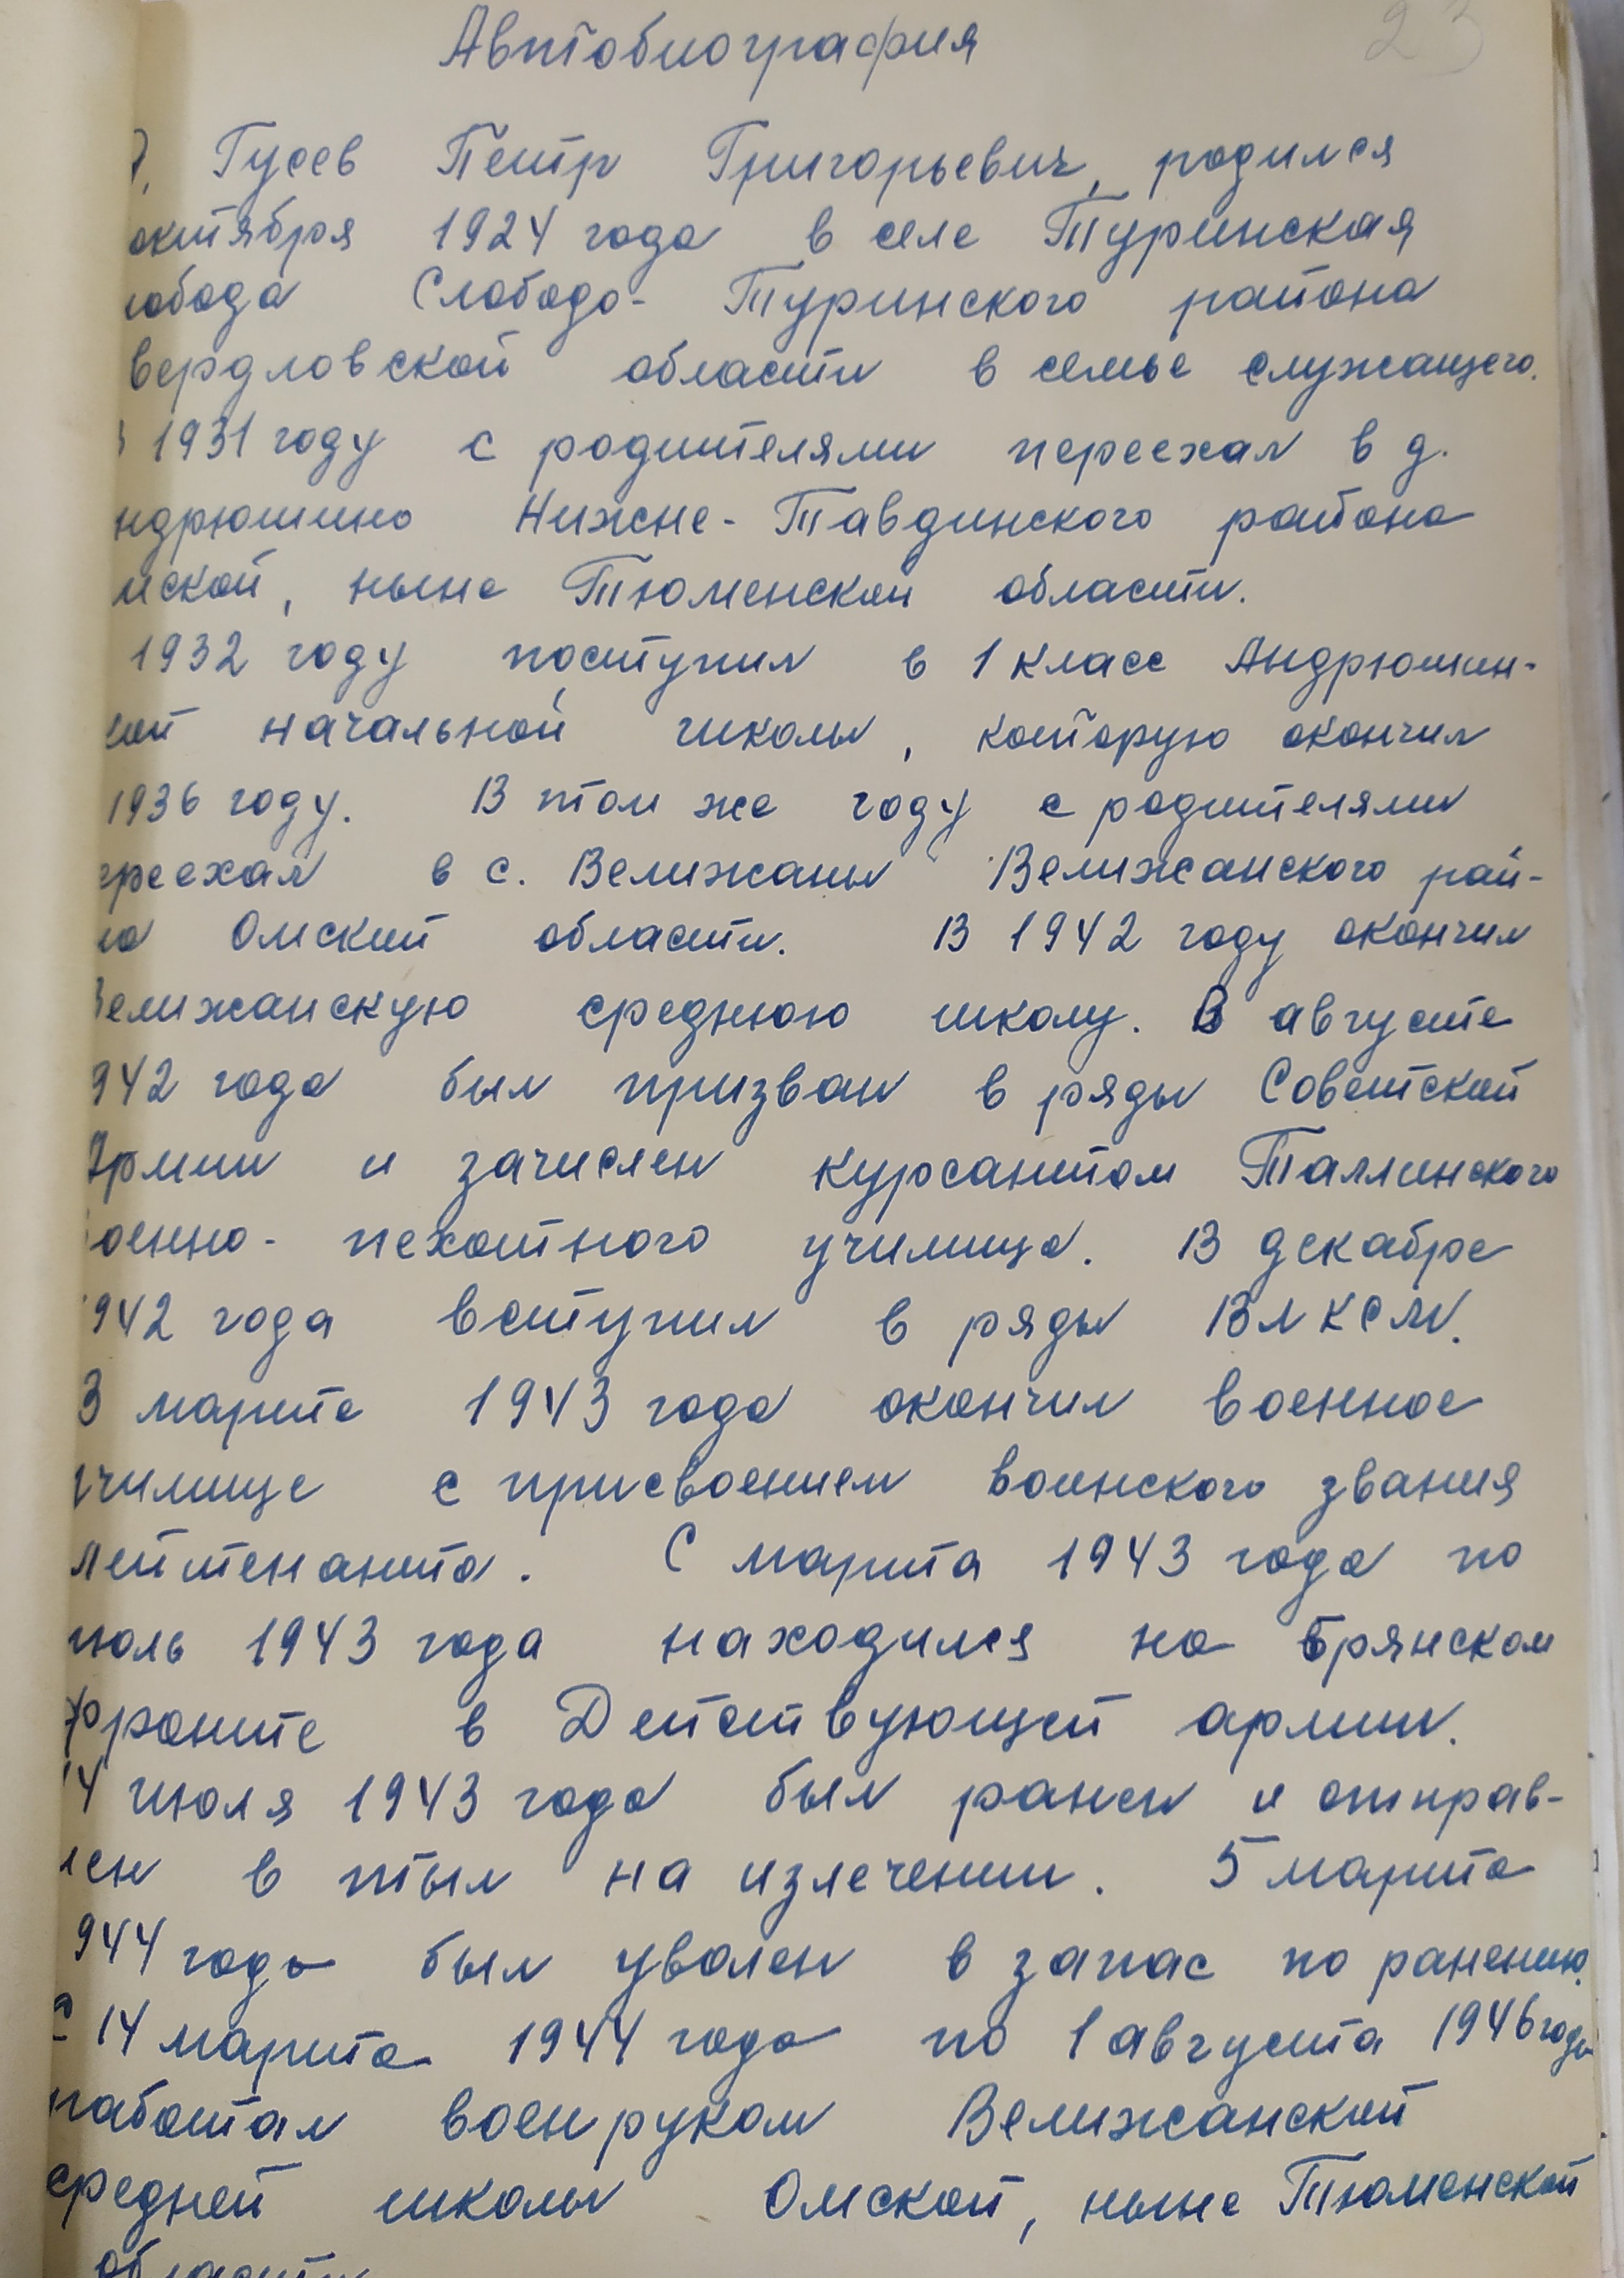 Автобиография
23
Я, Гусев Петр Григорьевич, родился
октября 1924 года в селе Туринская
лобода Слободо-Туринского района
вердловской области в семье служащего.
В 1931 году с родителями переехал в д.
ндрюшино Нижне-Тавдинского района
мской, ныне Тюменской области.
1932 году поступил в 1 класс Андрюшин-
кой начальной школы, которую окончил
1936 году. В том же году с родителями
ереехал в с. Велижаны Велижанского рай-
на Омской области. В 1942 году окончил
Велижанскую среднюю школу. В августе
942 года был призван в ряды Советской
Армии и зачислен курсантом Таллинского
военно-пехотного училища. В декабре
1942 года вступил в ряды ВЛКСМ.
В марте 1943 года окончил военное
училище с присвоением воинского звания
лейтенанта. С марта 1943 года по
июль 1943 года находился на Брянском
фронте в Действующей армии.
14 июля 1943 года был ранен и отправ-
лен в тыл на излечении. 5 марта
944 года был уволен в запас по ранению.
С 14 марта 1944 года по 1 августа 1946 года
работал военруком Велижанской
средней школы Омской, ныне Тюменской
области